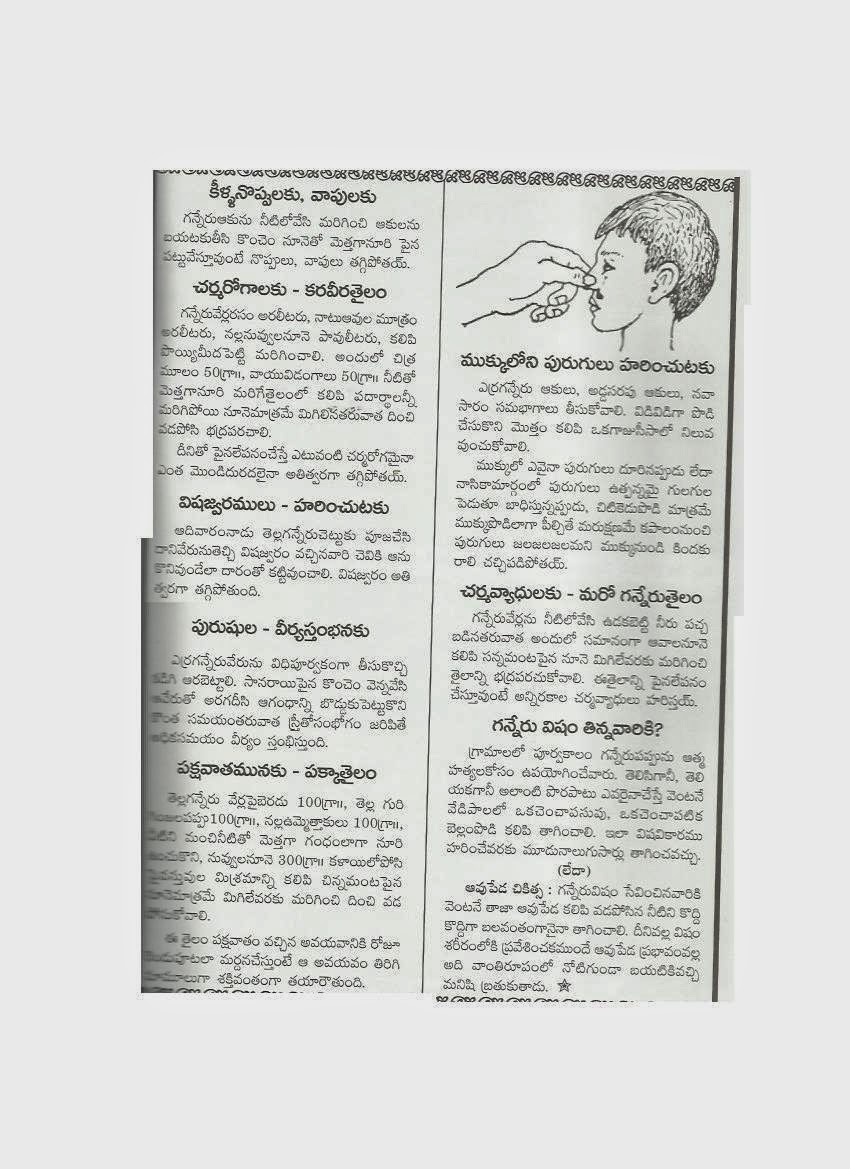 కీళ్ళనొప్పులకు, వాపులకు
గన్నేరుఆకును నీటిలోవేసి మరిగించి ఆకులను
బయటకుతీసి కొంచెం నూనెతో మెత్తగానూరి పైన
పట్టువేస్తూవుంటే నొప్పులు, వాపులు తగ్గిపోతయ్.
చర్మరోగాలకు - కరవీరతైలం
గన్నేరువేర్లరసం అరలీటరు, నాటుఆవుల మూత్రం
అరలీటరు, నల్లనువ్వులనూనె పావులీటరు, కలిపి
పొయ్యిమీదపెట్టి మరిగించాలి. అందులో చిత్ర
మూలం 50గ్రా॥, వాయువిడంగాలు 50గ్రా॥ నీటితో
మెత్తగానూరి మరిగేతైలంలో కలిపి పదార్థాలన్నీ
మరిగిపోయి నూనెమాత్రమే మిగిలినతరువాత దించి
వడపోసి భద్రపరచాలి.
దీనితో పైనలేపనంచేస్తే ఎటువంటి చర్మరోగమైనా
ఎంత మొండిదురదలైనా అతిత్వరగా తగ్గిపోతయ్.
విషజ్వరములు - హరించుటకు
ఆదివారంనాడు తెల్లగన్నేరుచెట్టుకు పూజచేసి
దానివేరునుతెచ్చి విషజ్వరం వచ్చినవారి చెవికి ఆను
కొనివుండేలా దారంతో కట్టివుంచాలి. విషజ్వరం అతి
త్వరగా తగ్గిపోతుంది.
పురుషుల - వీర్యస్తంభనకు
ఎర్రగన్నేరువేరును విధిపూర్వకంగా తీసుకొచ్చి
కడిగి ఆరబెట్టాలి. సానరాయిపైన కొంచెం వెన్నవేసి
ఆవేరుతో అరగదీసి ఆగంధాన్ని బొడ్డుకుపెట్టుకొని
కొంత సమయంతరువాత స్త్రీతోసంభోగం జరిపితే
అధికసమయం వీర్యం స్తంభిస్తుంది.
పక్షవాతమునకు - పక్కాతైలం
తెల్లగన్నేరు వేర్లపైబెరడు 100గ్రా॥, తెల్ల గురి
గింజలపప్పు100గ్రా॥, నల్లఉమ్మెత్తాకులు 100గ్రా॥,
వీటిని మంచినీటితో మెత్తగా గంధంలాగా నూరి
ఉంచుకొని, నువ్వులనూనె 300గ్రా॥ కళాయిలోపోసి
పైవస్తువుల మిశ్రమాన్ని కలిపి చిన్నమంటపైన
నూనెమాత్రమే మిగిలేవరకు మరిగించి దించి వడ
పోసుకోవాలి.
ఈ తైలం పక్షవాతం వచ్చిన అవయవానికి రోజూ
రెండుపూటలా మర్దనచేస్తుంటే ఆ అవయవం తిరిగి
మామూలుగా శక్తివంతంగా తయారౌతుంది.
ముక్కులోని పురుగులు హరించుటకు
ఎర్రగన్నేరు ఆకులు, అడ్డసరపు ఆకులు, నవా
సారం సమభాగాలు తీసుకోవాలి. విడివిడిగా పొడి
చేసుకొని మొత్తం కలిపి ఒకగాజుసీసాలో నిలువ
వుంచుకోవాలి.
ముక్కులో ఎవైనా పురుగులు దూరినప్పుడు లేదా
నాసికామార్గంలో పురుగులు ఉత్పన్నమై గులగుల
పెడుతూ బాధిస్తున్నప్పుడు, చిటికెడుపొడి మాత్రమే
ముక్కుపొడిలాగా పీల్చితే మరుక్షణమే కపాలంనుంచి
పురుగులు జలజలజలమని ముక్కునుండి కిందకు
రాలి చచ్చిపడిపోతయ్.
చర్మవ్యాధులకు - మరో గన్నేరుతైలం
గన్నేరువేర్లను నీటిలోవేసి ఉడకబెట్టి నీరు పచ్చ
బడినతరువాత అందులో సమానంగా ఆవాలనూనె
కలిపి సన్నమంటపైన నూనె మిగిలేవరకు మరిగించి
తైలాన్ని భద్రపరచుకోవాలి. ఈతైలాన్ని పైనలేపనం
చేస్తూవుంటే అన్నిరకాల చర్మవ్యాధులు హరిస్తయ్.
గన్నేరు విషం తిన్నవారికి?
గ్రామాలలో పూర్వకాలం గన్నేరుపప్పును ఆత్మ
హత్యలకోసం ఉపయోగించేవారు. తెలిసిగానీ, తెలి
యకగానీ అలాంటి పొరపాటు ఎవరైనాచేస్తే వెంటనే
వేడిపాలలో ఒకచెంచాపసుపు, ఒకచెంచాపటిక
బెల్లంపొడి కలిపి తాగించాలి. ఇలా విషవికారము
హరించేవరకు మూడునాలుగుసార్లు తాగించవచ్చు.
(లేదా)
ఆవుపేడ చికిత్స : గన్నేరువిషం సేవించినవారికి
వెంటనే తాజా ఆవుపేడ కలిపి వడపోసిన నీటిని కొద్ది
కొద్దిగా బలవంతంగానైనా తాగించాలి. దీనివల్ల విషం
శరీరంలోకి ప్రవేశించకముందే ఆవుపేడ ప్రభావంవల్ల
అది వాంతిరూపంలో నోటిగుండా బయటికివచ్చి
మనిషి బ్రతుకుతాడు.